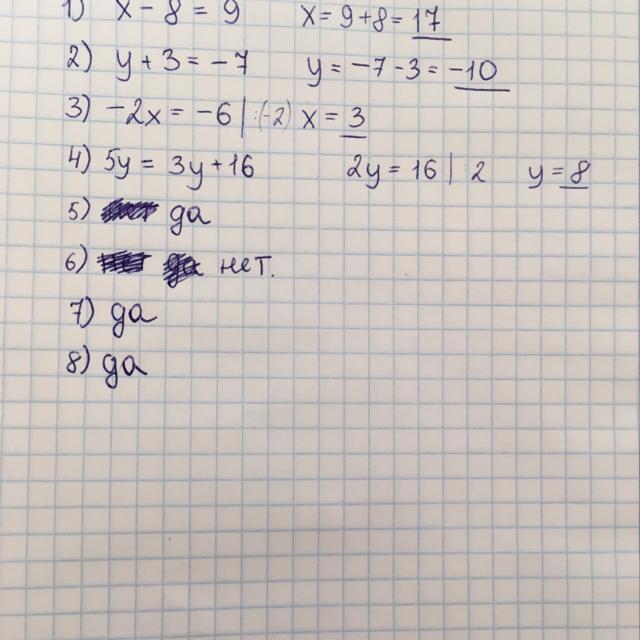 1) x - 8 = 9 x = 9+8 = 17
2) y + 3 = -7 y = -7 -3 = -10
3) -2x = -6 | :(-2) x = 3
4) 5y = 3y + 16 2y = 16 | 2 y = 8
5) да
6) да нет.
7) да
8) да